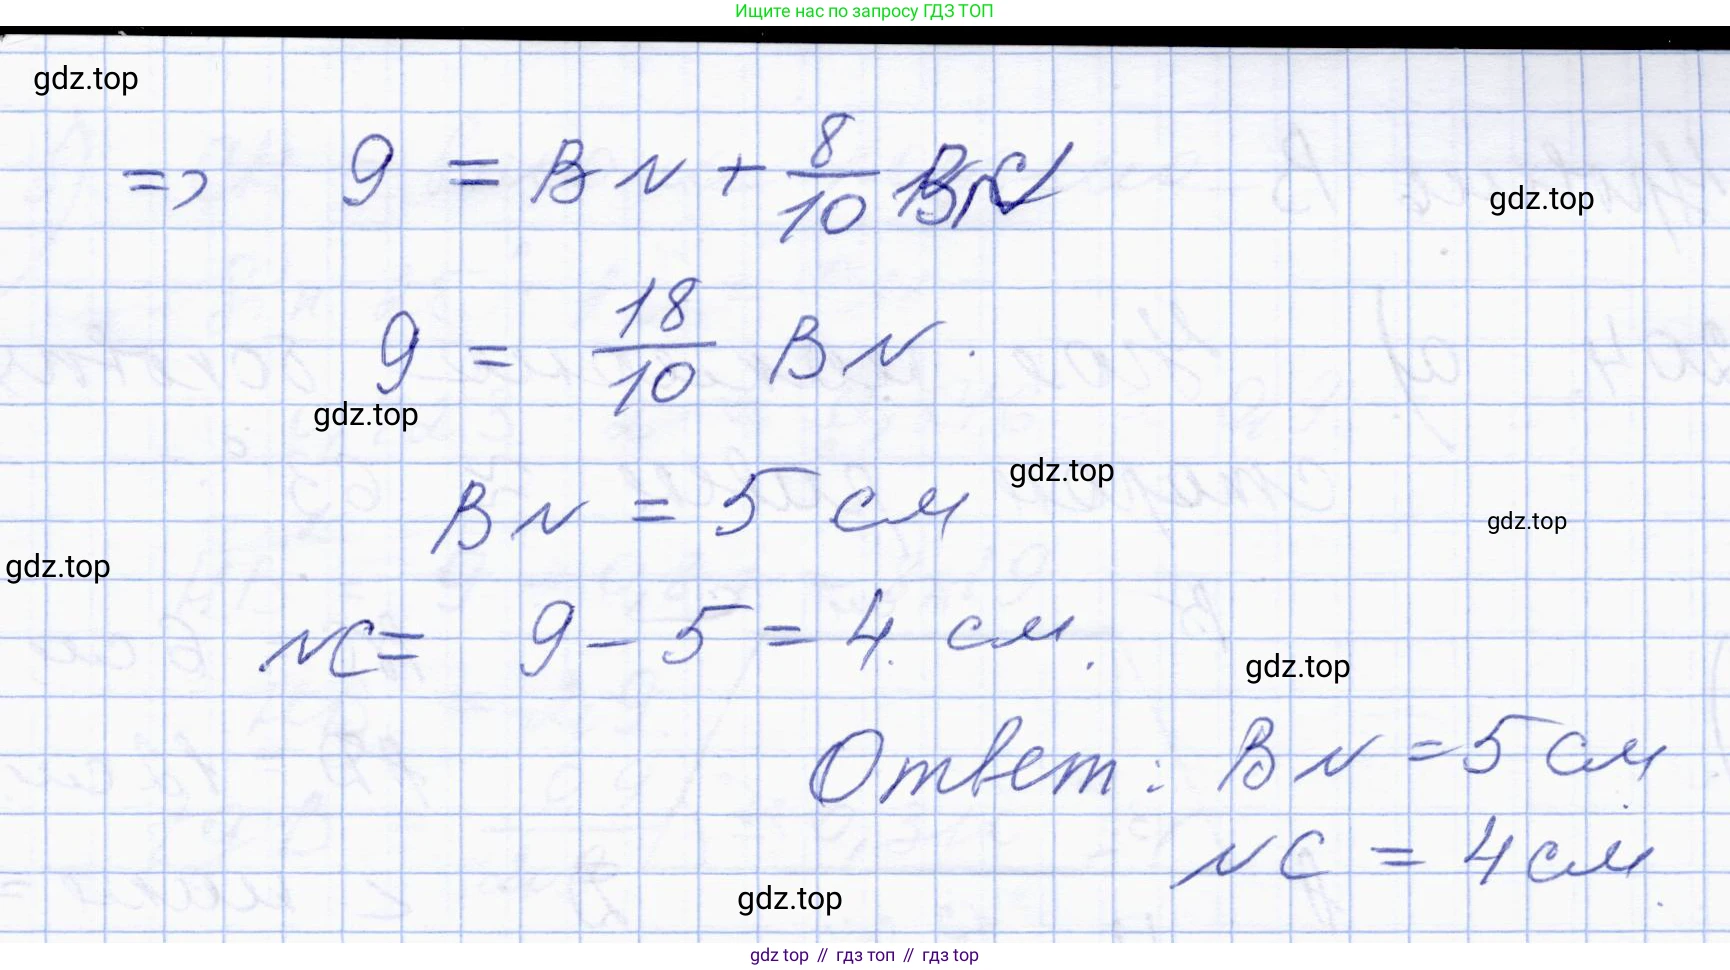 Ищите нас по запросу ГДЗ ТОП
gdz.top
=> 9 = BN + 8/10 BN
gdz.top
9 = 18/10 BN.
gdz.top
gdz.top
BN = 5 см
gdz.top
gdz.top
NC = 9 - 5 = 4 см.
gdz.top
Ответ: BN = 5 см
NC = 4 см.
gdz.top
gdz top // гдз топ // gdz top